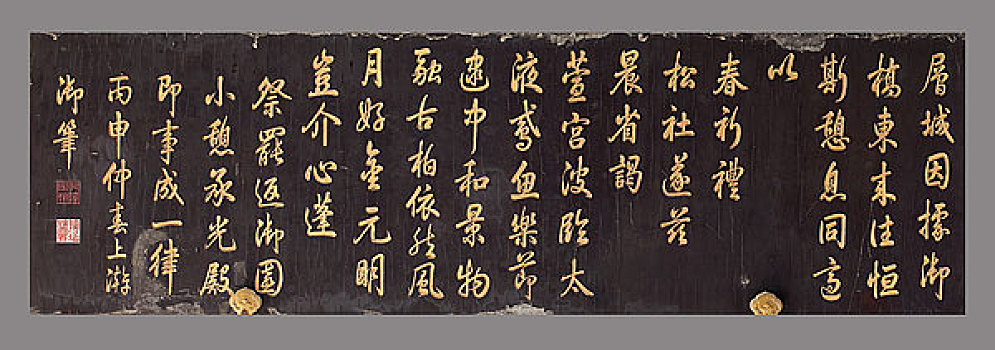 層城因據御
橋東来往恒
斯憩息同高
以
春祈禮
松社遂茲
晨省謁
萱宫波臨太
液鳶魚樂節
逮中和景物
融古柏依然風
月好金元明
豈介心蓬
祭罷返御園
小憩承光殿
即事成一律
丙申仲春上澣
御筆